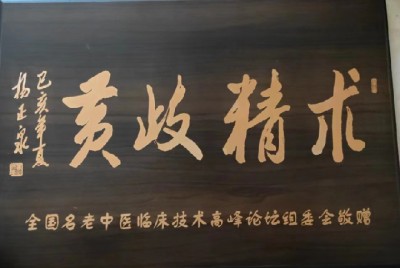 术精岐黄
己亥年夏
杨正泉
全国名老中医临床技术高峰论坛组委会敬赠